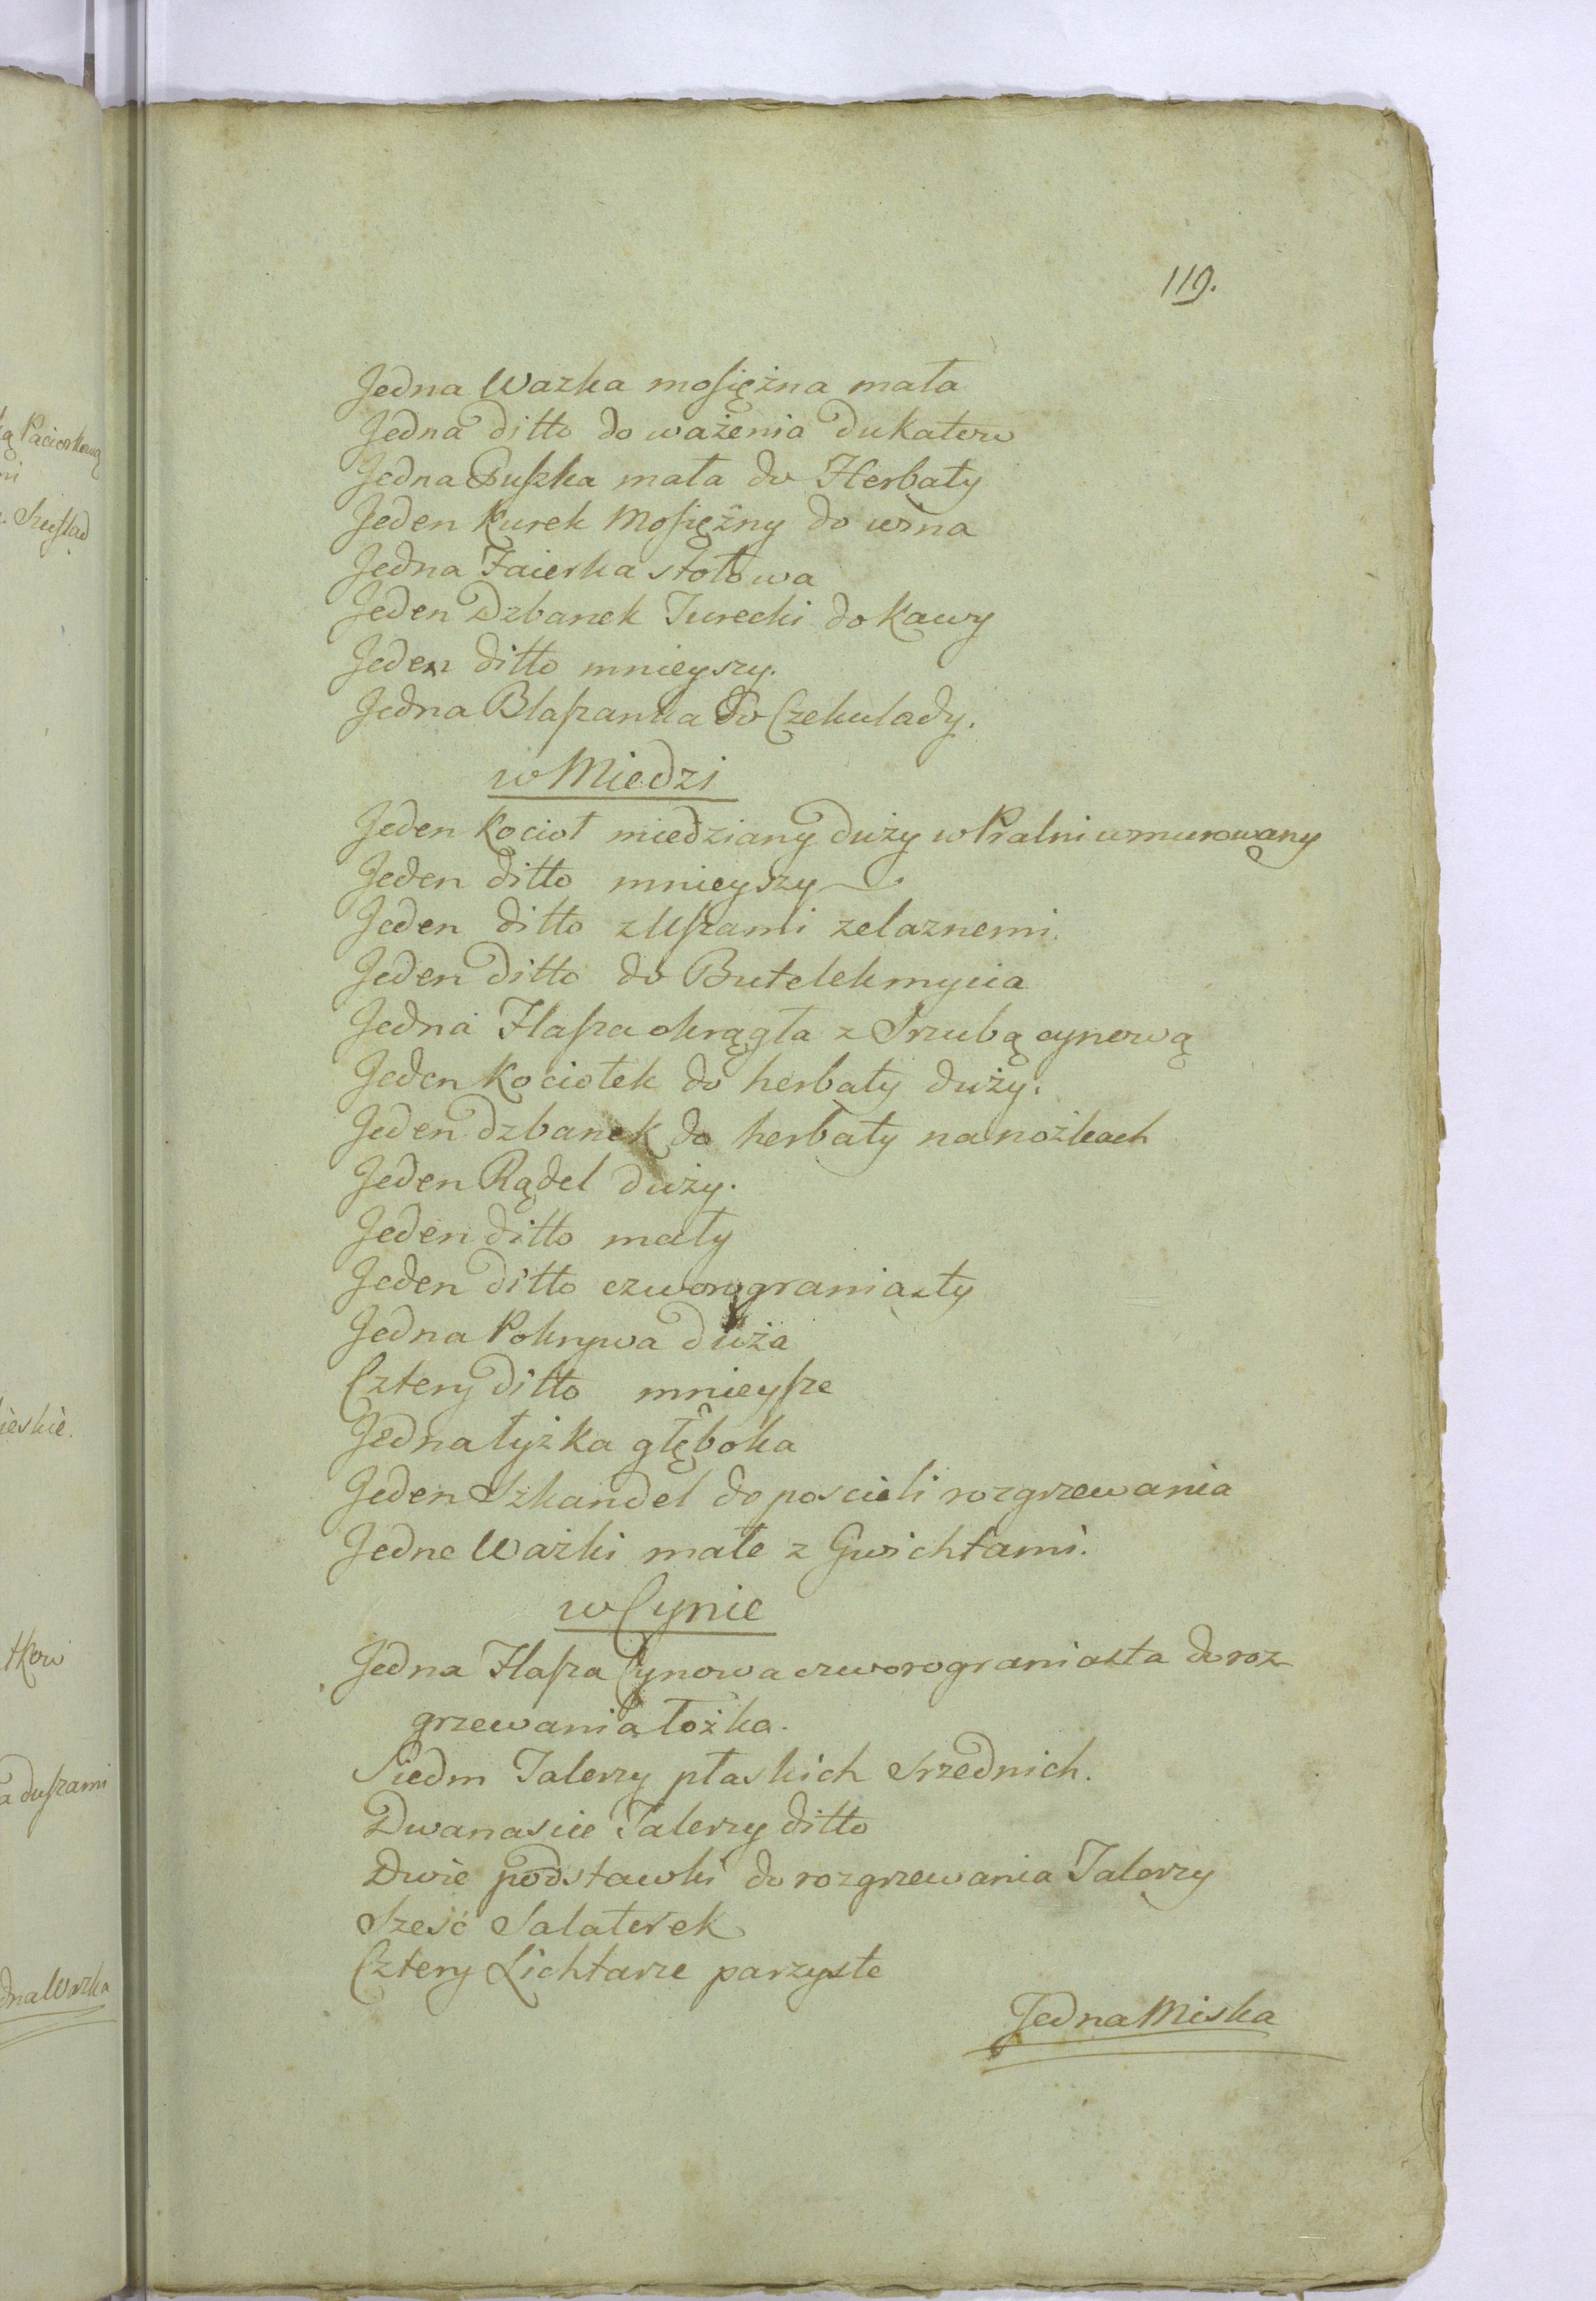 119.
Jedna Wazka mosiężna mała
Jedna ditto do ważenia Dukatow
Jedna Puszka mała do Herbaty
Jeden Kurek Mosiężny do wina
Jedna Faierka stołowa
Jeden Dzbanek Turecki do Kawy
Jeden ditto mnieyszy.
Jedna Blaszanka do Czekulady.
w Miedzi
Jeden Kocioł miedziany duży w Pralni wmurowany
Jeden ditto mnieyszy
Jeden ditto z Uszami zelaznemi.
Jeden ditto do Butelek mycia
Jedna Flasza okrągła z Srzubą cynową
Jeden Kociołek do herbaty duży.
Jeden dzbanek do herbaty na nożkach
Jeden Rądel duży.
Jeden ditto mały
Jeden ditto czworograniasty
Jedna Pokrywa duża
Cztery ditto mnieysze
Jedna łyżka głęboka
Jeden Szkandel do poscieli rozgrzewania
JedneWażki małe z Gwichtami.
w Cynie
Jedna Flasza Cynowa czworograniasta do roz
grzewania łożka.
Siedm Talerzy płaskich srzednich.
Dwanascie Talerzy ditto
Dwie podstawki do rozgrzewania Talerzy
Sześć Salaterek
Cztery Lichtarze parzyste
Jedna Miska
ą Paciorkową
ni
Szuflad
ieskie.
tkow
a duszami
dna Wazka